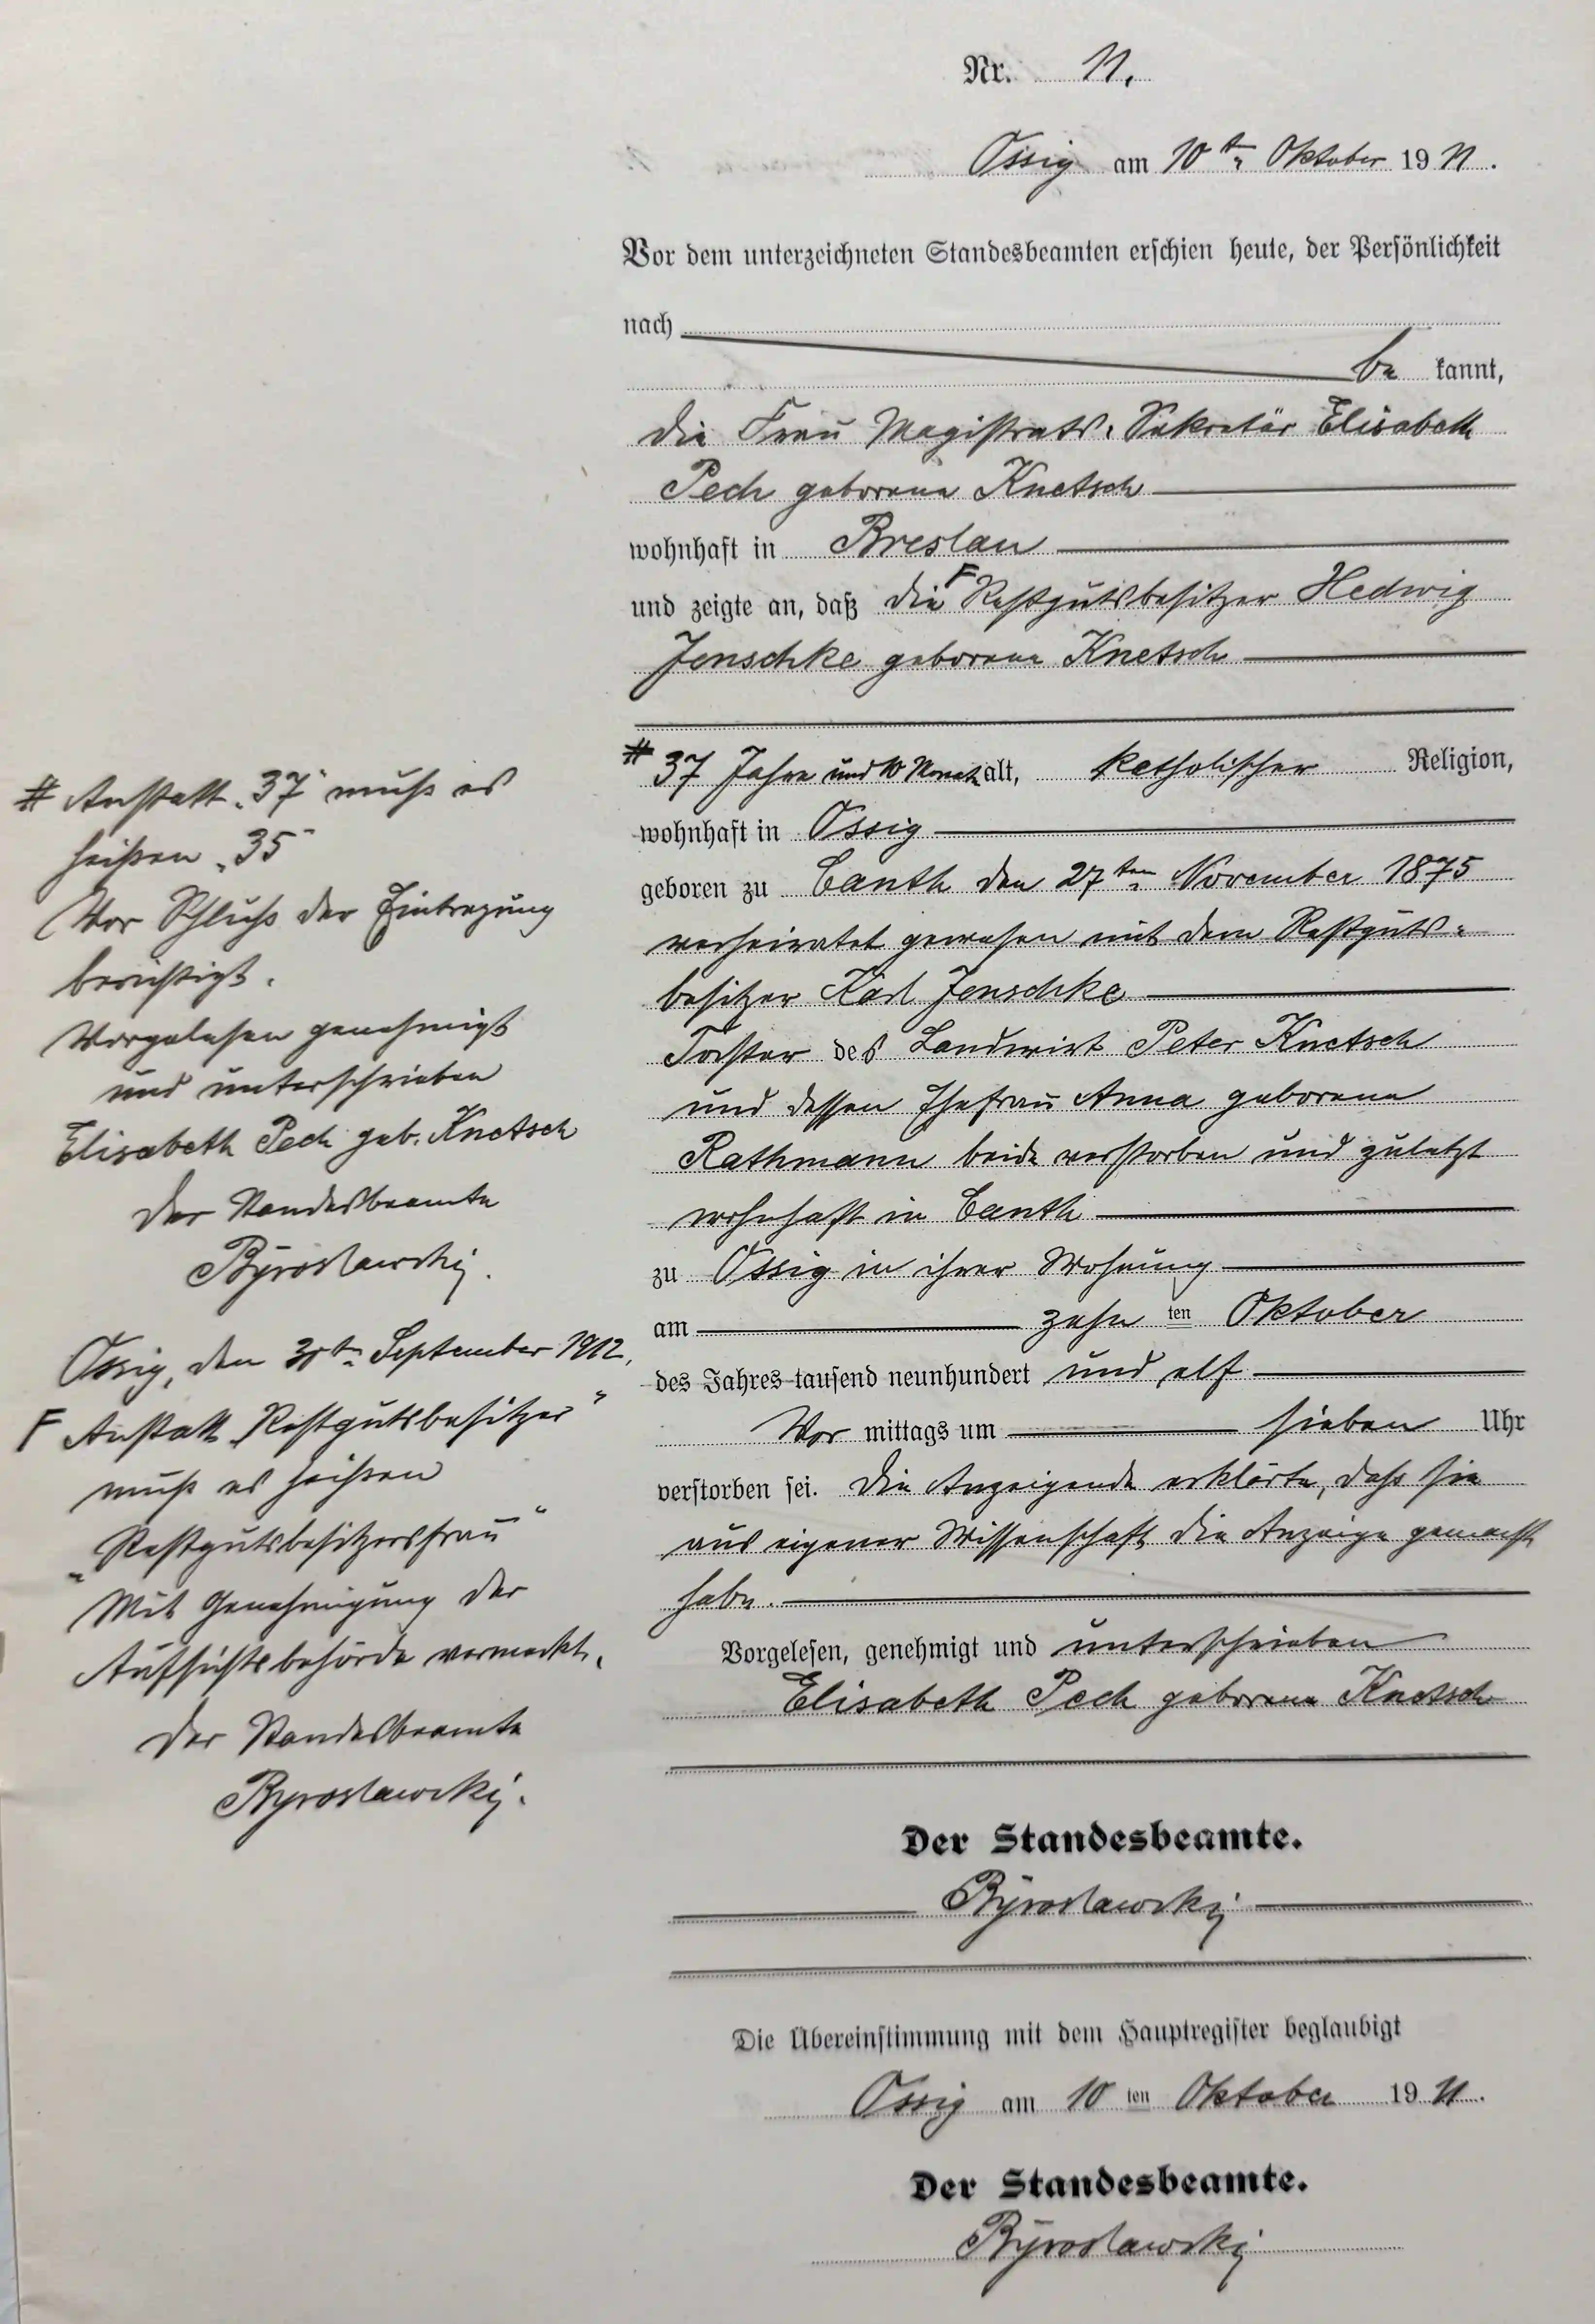 Nr. 11.
Ossig am 10ten Oktober 1911.
Vor dem unterzeichneten Standesbeamten erschien heute, der Persönlichkeit
nach
be kannt,
die Frau Magistrats-Sekretär Elisabeth
Pech geborene Knetsch
wohnhaft in Breslau
und zeigte an, daß die F Restgutsbesitzer Hedwig
Jenschke geborene Knetsch
# 37 Jahre und 10 Monate alt, katholischer Religion,
wohnhaft in Ossig
geboren zu Canth den 27ten November 1875
verheiratet gewesen mit dem Restguts-
besitzer Karl Jenschke
Tochter des Landwirt Peter Knetsch
und dessen Ehefrau Anna geborene
Rathmann beide verstorben und zuletzt
wohnhaft in Canth
zu Ossig in ihrer Wohnung
am zehn ten Oktober
des Jahres tausend neunhundert und elf
Vor mittags um sieben Uhr
verstorben sei. Die Anzeigende erklärte, daß sie
aus eigener Wissenschaft die Anzeige gemacht
habe.
Vorgelesen, genehmigt und unterschrieben
Elisabeth Pech geborene Knetsch
Der Standesbeamte.
Byroslawski
Die Übereinstimmung mit dem Hauptregister beglaubigt
Ossig am 10 ten Oktober 1911.
Der Standesbeamte.
Byroslawski
# Anstatt „37" muß es
heißen „35"
Vor Schluß der Eintragung
berichtigt.
Vorgelesen genehmigt
und unterschrieben
Elisabeth Pech geb. Knetsch
Der Standesbeamte
Byroslawski.
Ossig, den 30ten September 1912.
F Anstatt „Restgutsbesitzer"
muß es heißen
„Restgutsbesitzersfrau"
Mit Genehmigung der
Aufsichtsbehörde vermerkt.
Der Standesbeamte
Byroslawski.